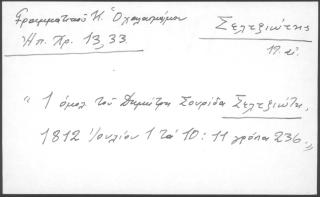 Γραμματικού Κ. Ο χαλασμένου
Ηπ. Χρ. 13, 33
Σελτζιώτης
17. ω.
"1 ομολ τού Δημήτρη Σουρίδα Σελτζιώτη,
1812 Ιουλίου 1 τά 10 : 11 γρόσια 236."